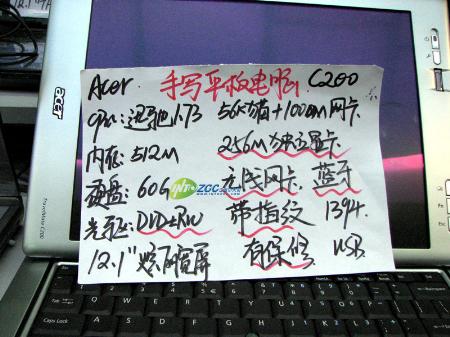 Acer 手写平板电脑 C200
cpu: 迅驰1.73 56K猫+100M网卡
内存: 512M 256M独立显卡
硬盘: 60G 无线网卡 蓝牙
光驱: DVD±RW 带指纹 1394.
12.1"炫丽宽屏 有保修 USB
INTO ZGC
acer
TravelMate C200
Caps Lock
A S D F G H J K L
Q W E R T Y U I O P